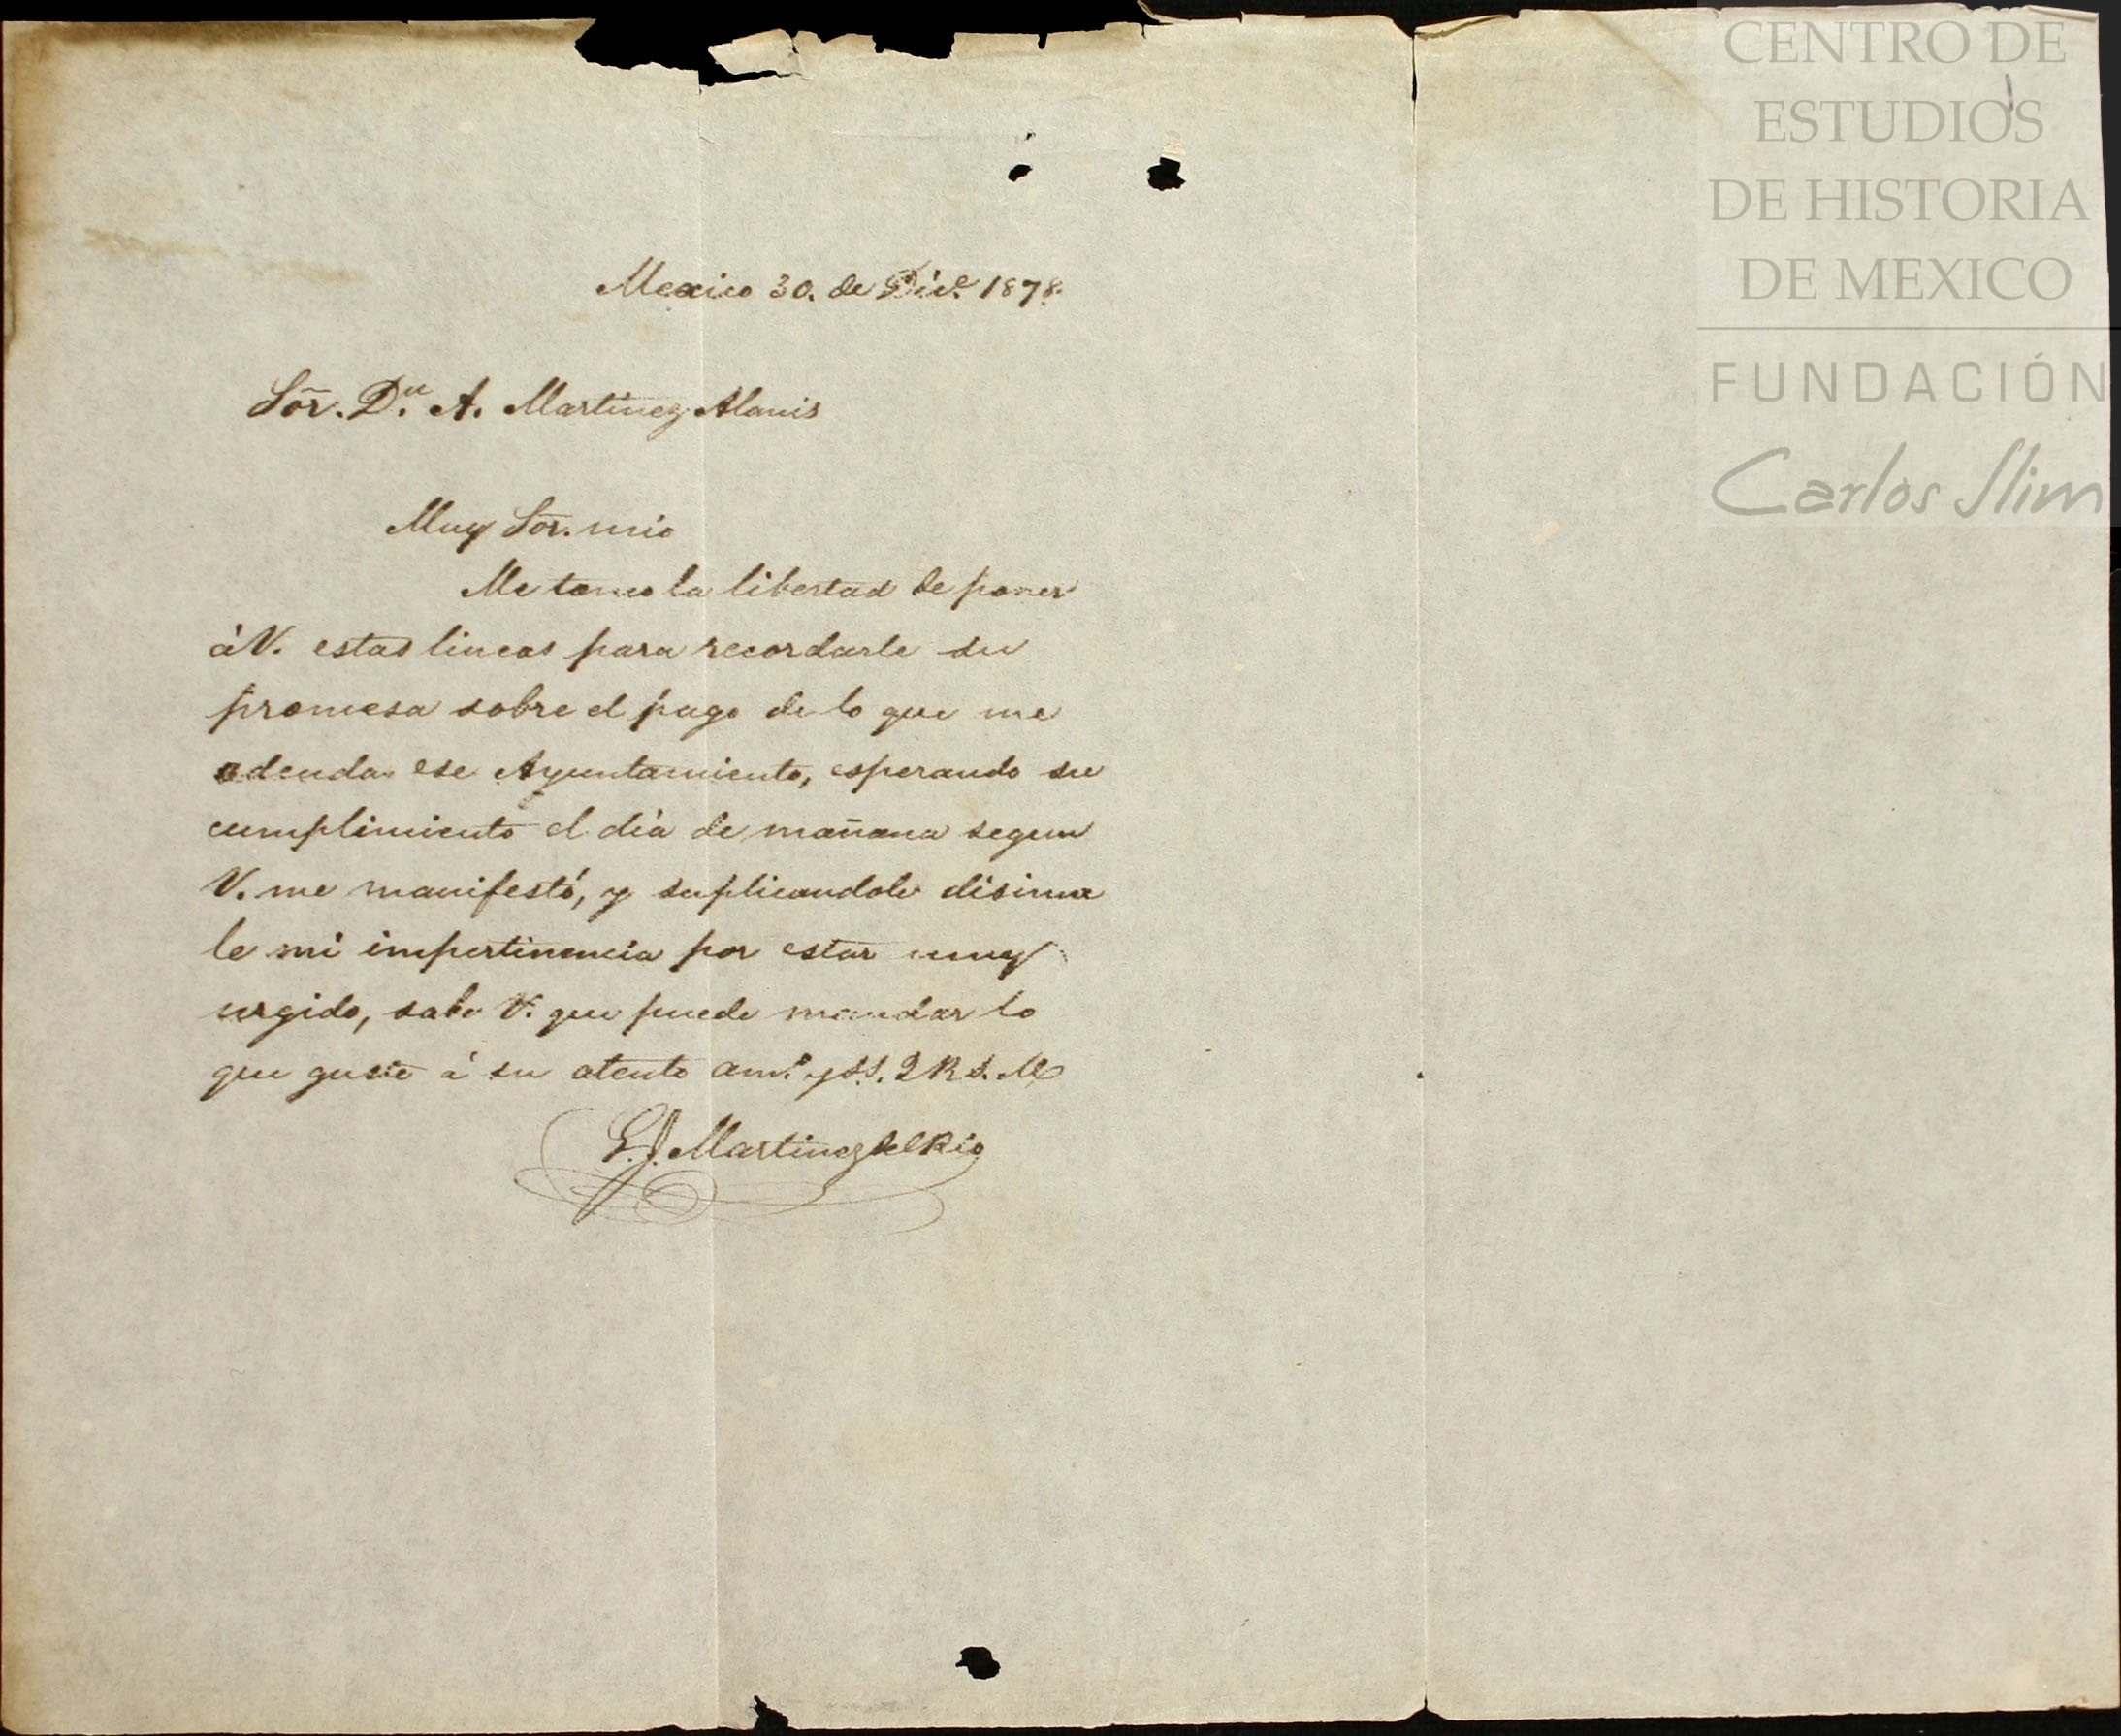 Mexico 30. de Dice. 1878.
Sōr. Dn. A. Martinez Alanis
Muy Sōr. mio
Me tomo la libertad de poner
à V. estas lineas para recordarle su
promesa sobre el pago de lo que me
adeuda ese Ayuntamiento, esperando su
cumplimiento el dia de mañana segun
V. me manifestó, y suplicandole disimu
le mi impertinencia por estar muy
urgido, sabe V. que puede mandar lo
que guste á su atento amo. y S.S. Q B S. M
G. J. Martinez del Rio
CENTRO DE
ESTUDIOS
DE HISTORIA
DE MEXICO
FUNDACIÓN
Carlos Slim